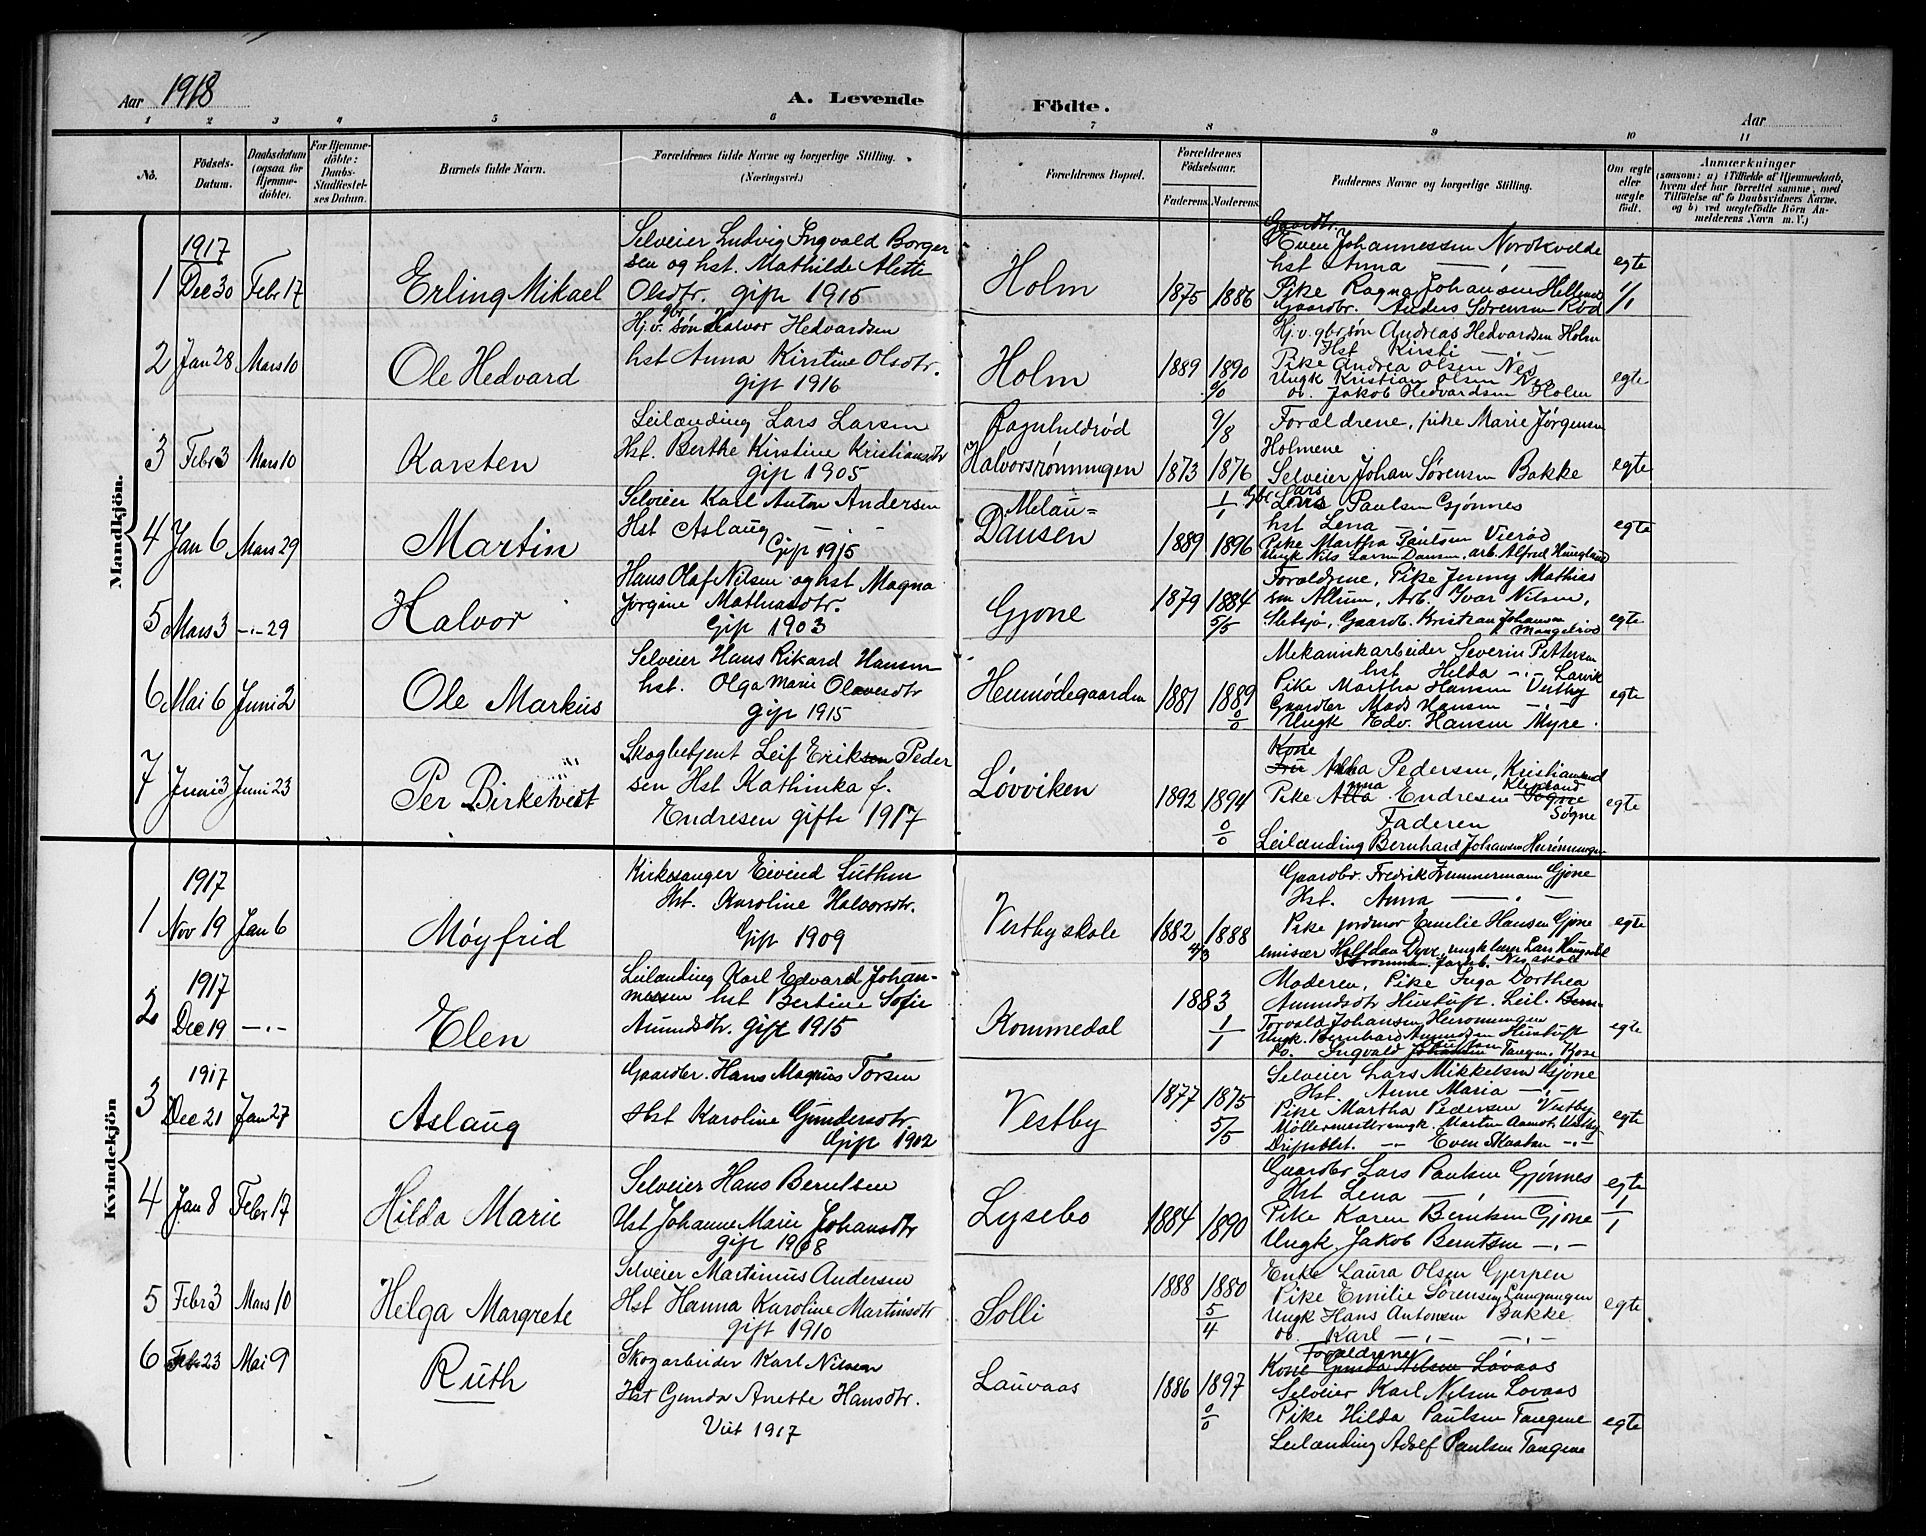 Aar 1918
A. Levende
Födte.
Aar
1 2 3 4 5 6 7 8 9 10 11
No.
Födsels-Datum.
Daabsdatum (ogsaa for Hjemme-döbte).
For Hjemme-döbte: Daabs-Stadfæstel-ses Datum.
Barnets fulde Navn.
Forældrenes fulde Navne og borgerlige Stilling.
(Næringsvei.)
Forældrenes Bopæl.
Forældrenes Födselsaar.
Faderens
Moderens
Faddernes Navne og borgerlige Stilling.
Om ægte eller uægte födt.
Anmærkninger
(saasom: a) i Tilfælde af Hjemmedaab,
hvem det har forrettet samme, med
Tilföielse af to Daabsvidners Navne,
og b) ved uægtefödte Börn An-
melderens Navn m. V.)
Mandkjön.
1 1917 Dec 30 Febr 17
Erling Mikael
Selveier Ludvig Ingvald Borger
sen og hst. Mathilde Alette
Olsdtr. gift 1915
Holm 1875 1886
Gaardbr.
Even Johannessen Nordkvelde
hst Anna —"—
Pike Ragna Johansen
Gaardbr. Anders Sørensen
egte 1/1
2 Jan 28 Mars 10
Ole Hedvard
Hj.v. gbr søn Halvor Hedvardsen
hst Anna Kirstine Olsdtr.
gift 1916
Holm 1889 1890 0/0
Hj.v. gbr søn Andreas Hedvardsen Holm
Hst Kirsti —"—
Pike Andrea Olsen Nes
Ungk Kristian Olsen Nes
do. Jakob Hedvardsen Holm
egte
3 Febr 3 Mars 10
Karsten
Leilænding Lars Larsen
Hst. Berthe Kirstine Kristiansdtr
gift 1905
Ragnhildrød
Halvorsrønningen 1873 1876 9/8
Forældrene, pike Marie Jørgensen
Holmene
Selveier Johan Sørensen Bakke
egte
4 Jan 6 Mars 29
Martin
Selveier Karl Anton Andersen
Hst Aslaug —"—
Gift 1915
Melau=
Dansen 1889 1896 1/1
Gbr Lars Paulsen Gjønnes
hst Lena —"—
Pike Martha Paulsen Vierød
Ungk Nils Larsen Dansen, arb. Alfred
egte
5 Mars 3 -"- 29
Halvor
Hans Olaf Nilsen og hst Magna
Jørgine Mathiasdtr.
Gift 1903
Gjone 1879 1884 5/5
Forældrene, Pike Jenny Mathias
sen Allum, Arb. Ivar Nilsen,
Sletsjø, Gaardb. Kristian Johansen
egte
6 Mai 6 Juni 2
Ole Markus
Selveier Hans Rikard Hansen
hst. Olga Marie Olavesdtr
gift 1915
Hemmødegaarden 1881 1889 0/0
Mekaniskarbeider Severin Pettersen
hst Hilda -"- Larvik
Pike Martha Hansen Vestby
Gaardbr Mads Hansen -"-
Ungk Edv. Hansen Myre.
egte
7 Juni 3 Juni 23
Per Birketvedt
Skogbetjent Leif Eriksen Peder
sen Hst Kathinka f.
Endresen gifte 1917
Løvviken 1892 1894 0/0
Kone
Fru Anna Pedersen, Kristiansand
Pike Anna Endresen Klepland Søgne
Faderen
Leilænding Bernhard Johansen
egte
Kvindekjön
1 1917 Nov 19 Jan 6
Møyfrid
Kirkesanger Eivind Luthen
Hst. Karoline Halvorsdtr.
Gift 1909
Vestby skole 1882 1888 4/3
Gaardbr. Fredrik Zimmermann Gjone
Hst. Anna —"—
Pike jordmor Emilie Hansen Gjone
emisær Halfdan Dyve, ungk lærer Lars Haugedal
egte
2 1917 Dec 19 -"-
Elen
Leilanding Karl Edvard Johan-
nessen hst Bertine Sofie
Amundsdtr. gift 1915
Kommedal 1883 1/1
Moderen, Pike Inga Dorthea
Amundsdtr Hustuft. Leil. Bern-
Torvald Johansen
Ungk. Bernhard Amundsen Hustuft
do. Ingvald Tangen, Kjose
egte
3 1917 Dec 21 Jan 27
Aslaug
Gaardbr. Hans Magnus Torsen
Hst Karoline Gundersdtr.
Gift 1902
Vestby 1877 1875 5/5
Selveier Lars Mikkelsen Gjone
Hst. Anne Maria -"-
Pike Martha Pedersen Vestby
Møllermester ungk. Martin Aamot, Vestby
Driftsblst. -"- Even Maatan -"-
egte
4 Jan 8 Febr 17
Hilda Marie
Selveier Hans Berntsen
Hst Johanne Marie Johansdtr
gift 1908
Lysebo 1884 1890
Gaardbr Lars Paulsen Gjønnes
Hst Lena —"—
Pike Karen Berntsen Gjone
Ungk. Jakob Berntsen -"-
egte 1/1
5 Febr 3 Mars 10
Helga Margrete
Selveier Martinius Andersen
Hst Hanna Karoline Martinsdtr
gift 1910
Solli 1888 1880 5/4
Enke Laura Olsen Gjerpen
Pike Emilie Sørensen Langangen
Ungk Hans Antonsen Bakke
do. Karl -"- -"-
egte
6 Febr 23 Mai 9
Ruth
Skogarbeider Karl Nilsen
Hst Gunda Anette Hansdtr.
Viet 1917
Lauvaas 1886 1897 0/0
Forældrene
Kone Gunda Nilsen Løvaas
Selveier Karl Nilsen Lovaas
Pike Hilda Paulsen Tangene
Leilænding Adolf Paulsen Tangene
egte